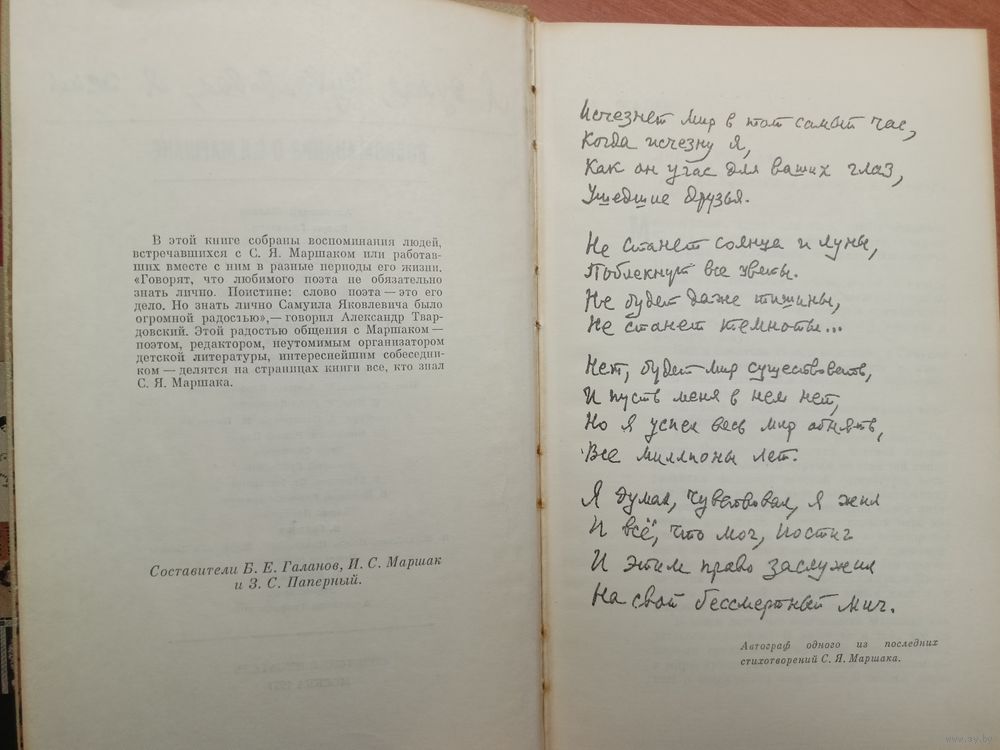 В этой книге собраны воспоминания людей,
встречавшихся с С. Я. Маршаком или работав-
ших вместе с ним в разные периоды его жизни.
«Говорят, что любимого поэта не обязательно
знать лично. Поистине: слово поэта — это его
дело. Но знать лично Самуила Яковлевича было
огромной радостью»,— говорил Александр Твар-
довский. Этой радостью общения с Маршаком —
поэтом, редактором, неутомимым организатором
детской литературы, интереснейшим собеседни-
ком — делятся на страницах книги все, кто знал
С. Я. Маршака.
Составители Б. Е. Галанов, И. С. Маршак
и З. С. Паперный.
Исчезнет мир в тот самый час,
Когда исчезну я,
Как он угас для ваших глаз,
Ушедшие друзья.
Не станет солнца и луны,
Поблекнут все цветы.
Не будет даже тишины,
Не станет темноты...
Нет, будет мир существовать,
И пусть меня в нем нет,
Но я успел весь мир обнять,
Все миллионы лет.
Я думал, чувствовал, я жил
И всё, что мог, постиг
И этим право заслужил
На свой бессмертный миг.
Автограф одного из последних
стихотворений С. Я. Маршака.
www.ay.by